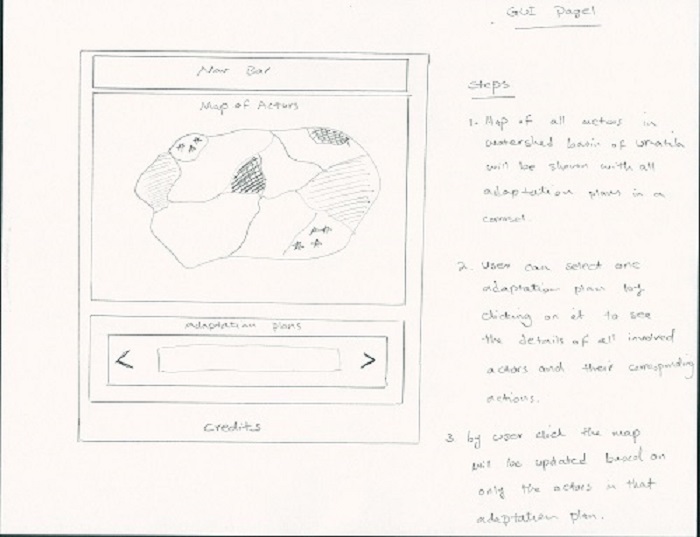 GUI Page1
Nav Bar
Map of Actors
adaptation plans
< >
Credits
Steps
1. Map of all actors in
watershed basin of
will be shown with all
adaptation plans in a
carosel.
2. User can select one
adaptation plan by
clicking on it to see
the details of all involved
actors and their
actions.
3 by user click the map
will be updated based on
only the actors in that
adaptation plan.